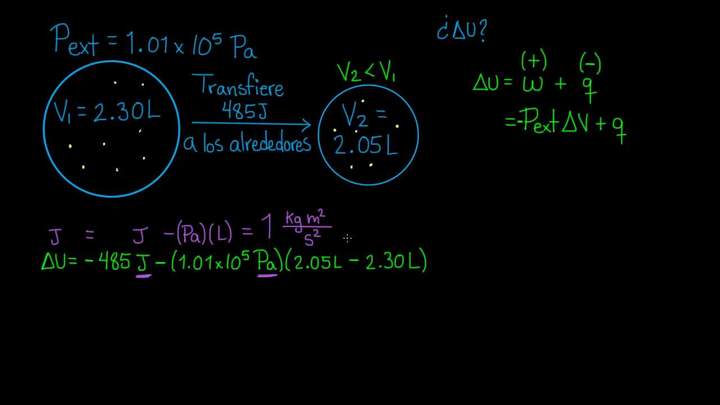 Pext = 1.01 x 10⁵ Pa
¿ΔU?
V₁ = 2.30L
Transfiere
485J
a los alrededores
V₂ < V₁
V₂ =
2.05L
(+) (-)
ΔU = w + q
= -Pext ΔV + q
J = J - (Pa)(L) = 1 kg m²/s²
ΔU = - 485 J - (1.01 x 10⁵ Pa)(2.05L - 2.30L)